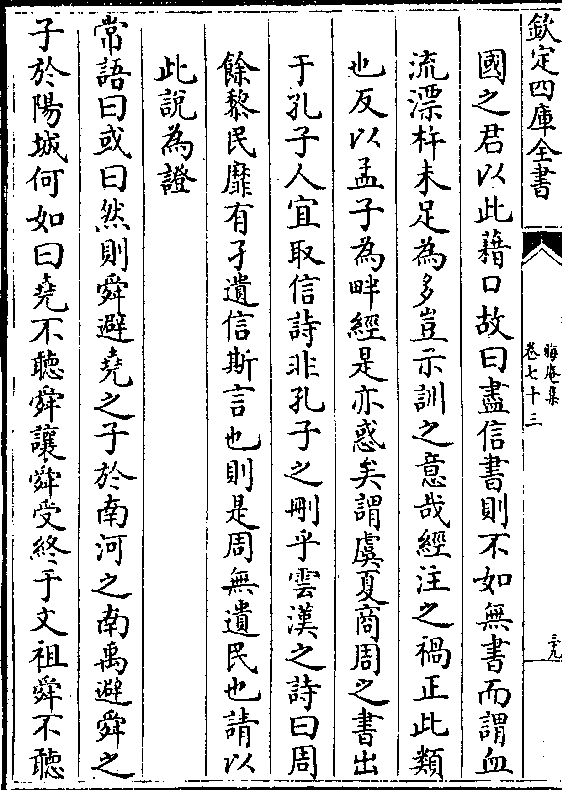 欽定四庫全書
晦庵集
卷七十三
三九
國之君以此藉口故曰盡信書則不如無書而謂血
流漂杵未足為多豈示訓之意哉經注之禍正此類
也反以孟子為畔經是亦惑矣謂虞夏商周之書出
于孔子人宜取信詩非孔子之刪乎雲漢之詩曰周
餘黎民靡有孑遺信斯言也則是周無遺民也請以
此說為證
常語曰或曰然則舜避堯之子於南河之南禹避舜之
子於陽城何如曰堯不聽舜讓舜受終于文祖舜不聽